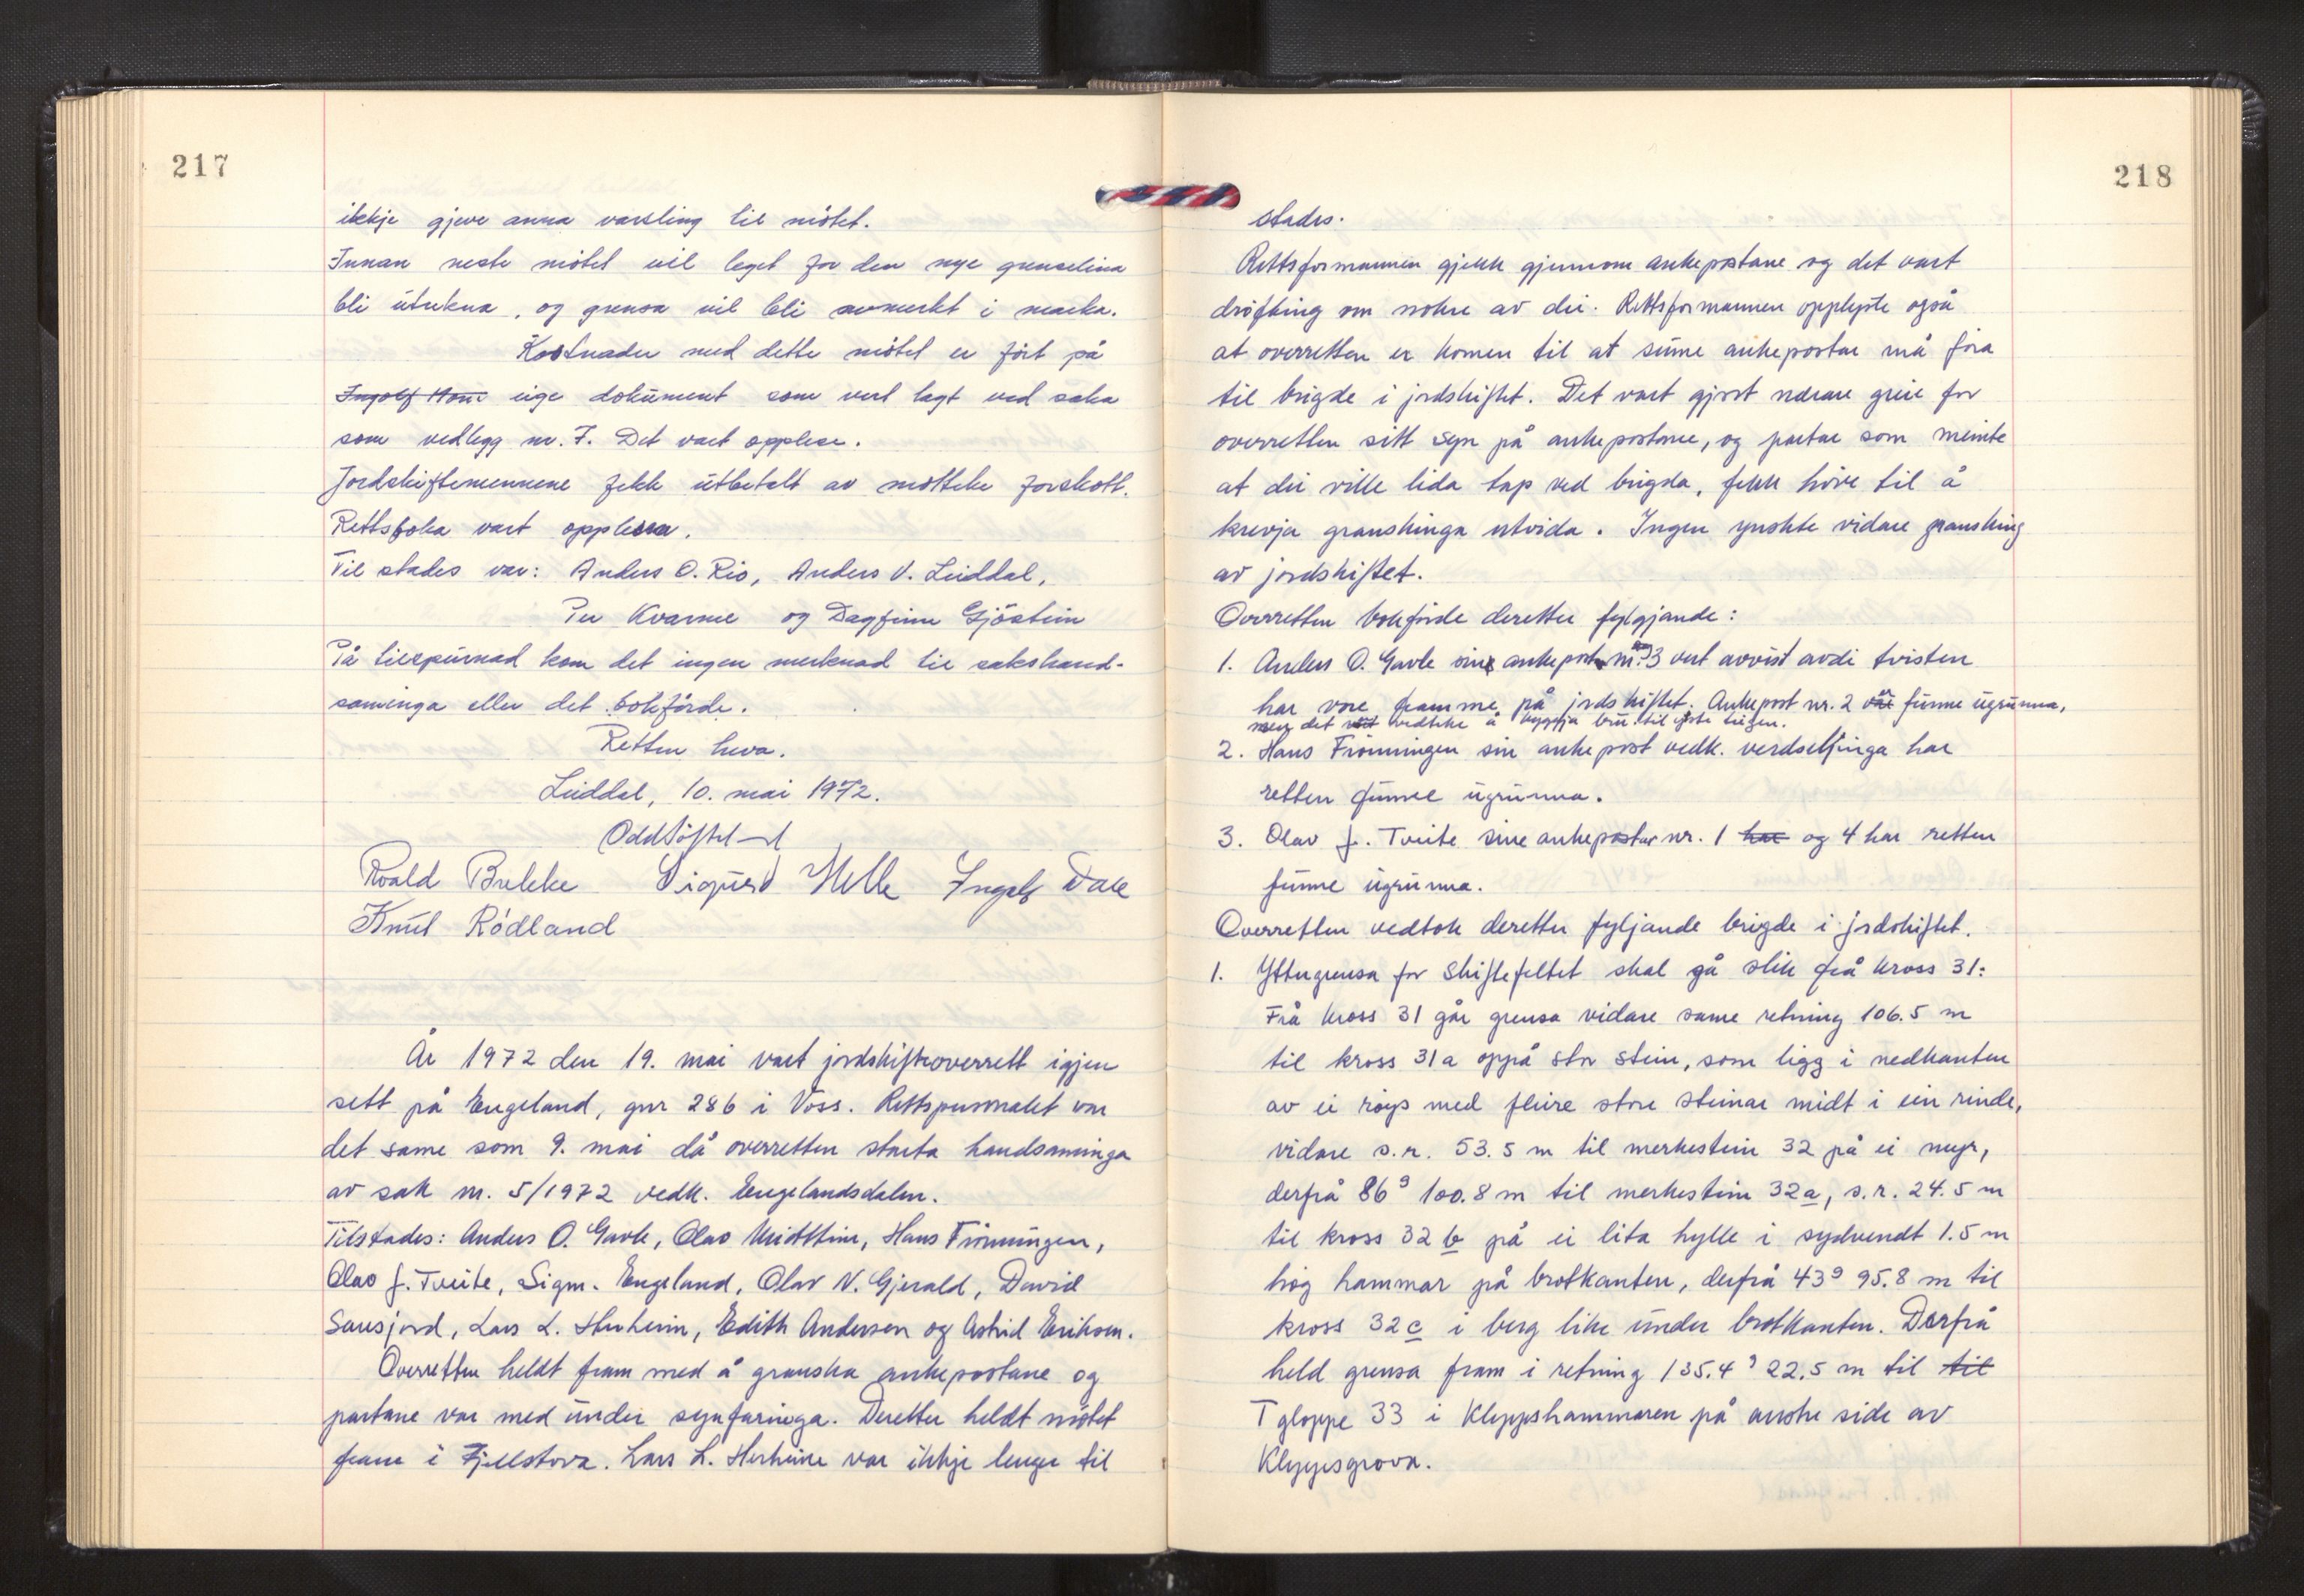 217
ikkje gjeve anna varsling til møtet.
Innan neste møtet vil leget for den nye grenselina
bli utrekna, og grensa vil bli avmerkt i marka.
Kostnader med dette møtet er ført på
Ingolf eige dokument som vert lagt ved saka
som vedlegg nr. 7. Det vart opplese.
Jordskiftemennene fekk utbetalt av motteke forskott.
Rettsboka vart opplesa.
Til stades var: Anders O. Rio, Anders V. Liddal,
Per Kvarme og Dagfinn Gjøstein
På tilspurnad kom det ingen merknad til sakshand-
saminga eller det bokførde.
Retten heva.
Liddal, 10. mai 1972.
Odd
Roald Brekke Sigurd Helle Ingolf Dale
Knut Rödland
År 1972 den 19. mai vart jordskifteoverrett igjen
sett på Engeland, gnr 286 i Voss. Rettspersonalet var
det same som 9. mai då overretten starta handsaminga
av sak nr. 5/1972 vedk. Engelandsdalen.
Tilstades: Anders O. Gavle, Olav Midttun, Hans Frønningen,
Olav J. Tveite, Sigm. Engeland, Olav N. Gjerald, David
Sausjord, Lars L. Herheim, Edith Andersen og Astrid Eriksen.
Overretten heldt fram med å granska ankepostane og
partane var med under synfaringa. Deretter heldt møtet
fram i Fjellstova. Lars L. Herheim var ikkje lenger til
218
stades.
Rettsformannen gjekk gjennom ankepostane og det vart
drøfting om nokre av dei. Rettsformannen opplyste også
at overretten er komen til at sume ankepostar må føra
til brigde i jordskiftet. Det vart gjort nærare greie for
overretten sitt syn på ankepostane, og partar som meinte
at dei ville lida tap ved brigda, fekk høve til å
krevja granskinga utvida. Ingen ynskte vidare gransking
av jordskiftet.
Overretten bokførde deretter fylgjande:
1. Anders O. Gavle sin ankepost nr. 3 vert avvist avdi tvisten
har vore framme på jordskiftet. Ankepost nr. 2 er funne ugrunna,
men det vart vedteke å byggja bru til øvste teigen.
2. Hans Frønningen sin ankepost vedk. verdsetjinga har
retten funne ugrunna.
3. Olav J. Tveite sine ankepostar nr. 1 har og 4 har retten
funne ugrunna.
Overretten vedtok deretter fyljande brigde i jordskiftet.
1. Yttergrensa for skiftefeltet skal gå slik frå kross 31:
Frå kross 31 går grensa vidare same retning 106.5 m
til kross 31a oppå stor stein, som ligg i nedkanten
av ei røys med fleire store steinar midt i ein rinde,
vidare s.r. 53.5 m til merkestein 32 på ei myr,
derfrå 86ᵍ 100.8 m til merkestein 32a, s.r. 24.5 m
til kross 32 b på ei lita hylle i sydvendt 1.5 m
høg hammar på brotkanten, derfrå 43ᵍ 95.8 m til
kross 32 c i berg like under brotkanten. Derfrå
held grensa fram i retning 135.4ᵍ 22.5 m til til
T gloppe 33 i Kleppshammaren på austre side av
Kleppesgrova.